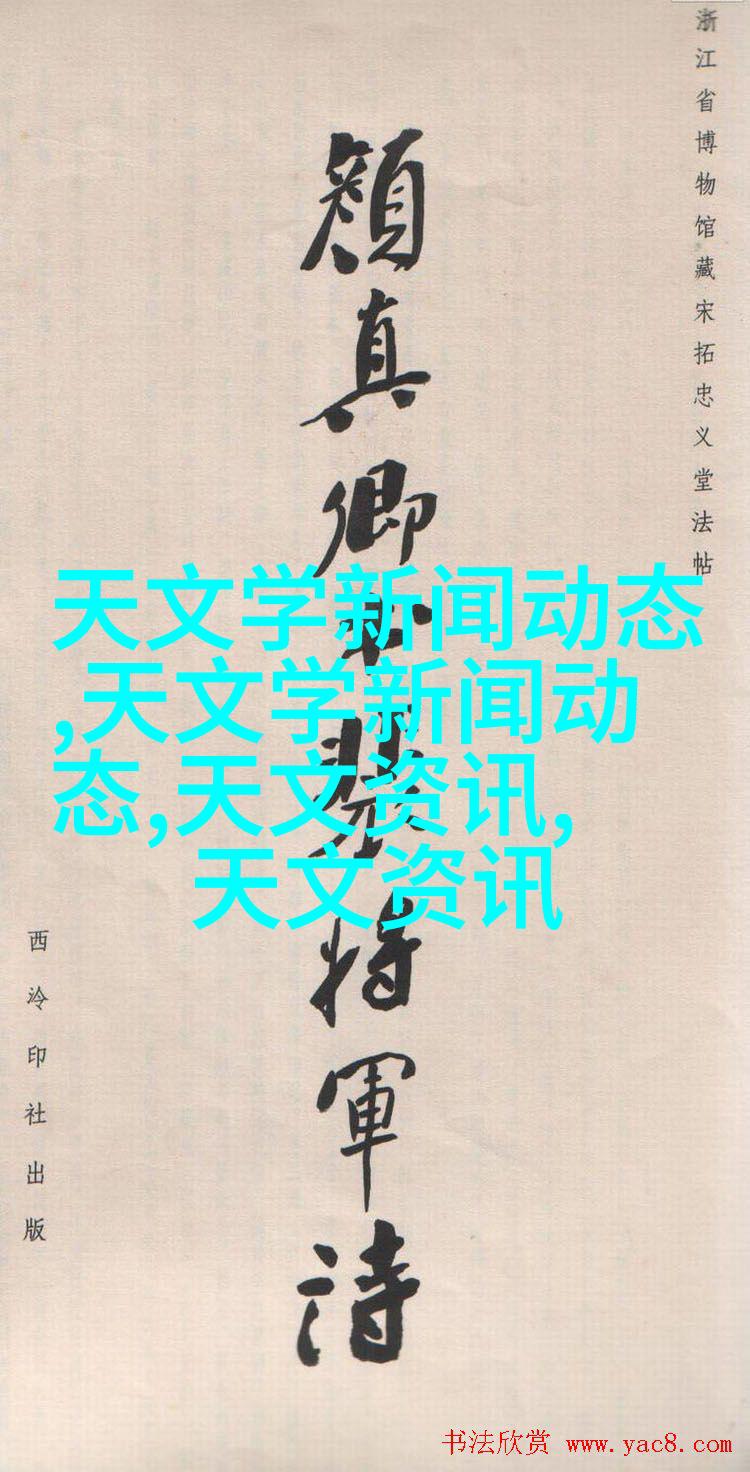 浙江省博物馆藏宋拓忠义堂法帖
顔真卿裴将軍诗
西泠印社出版
天文学新闻动态
,天文学新闻动
态,天文资讯,
天文资讯
书法欣赏 www.yac8.com